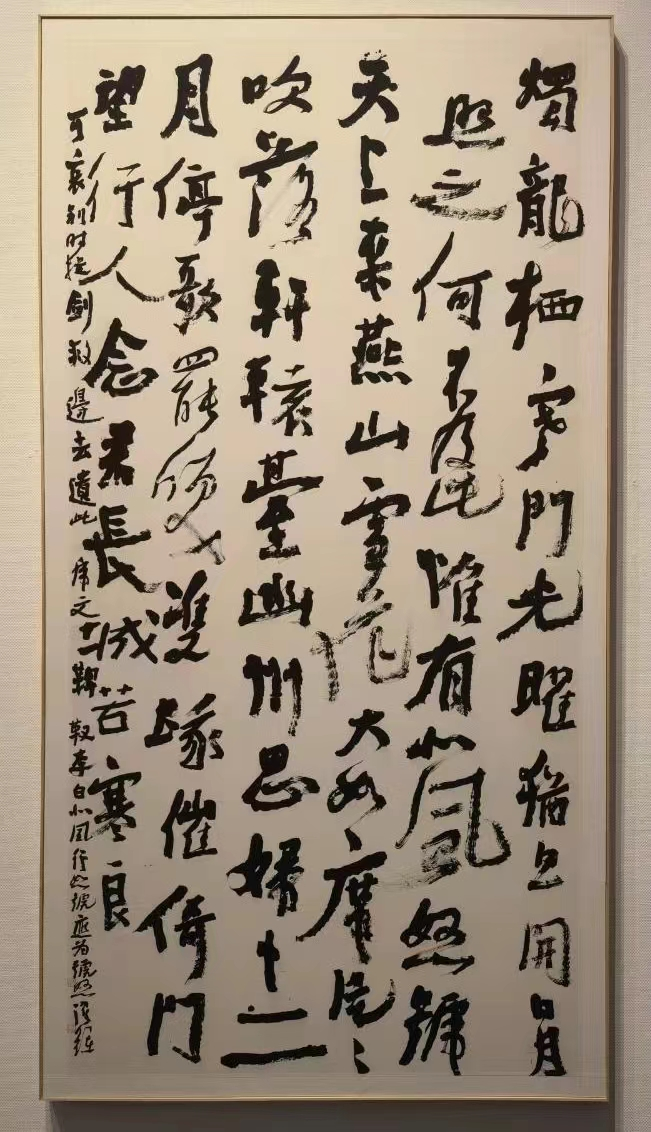 燭龍栖寒門光曜猶旦開日月
照之何不及此惟有北風怒號
天上來燕山雪花大如席片々
吹落軒轅臺幽州思婦十二
月停歌罷笑雙蛾催倚門
望行人念君長城苦寒良
可哀別時提劍救邊去遺此虎文金鞞靫李白北風行怒號應為號怒